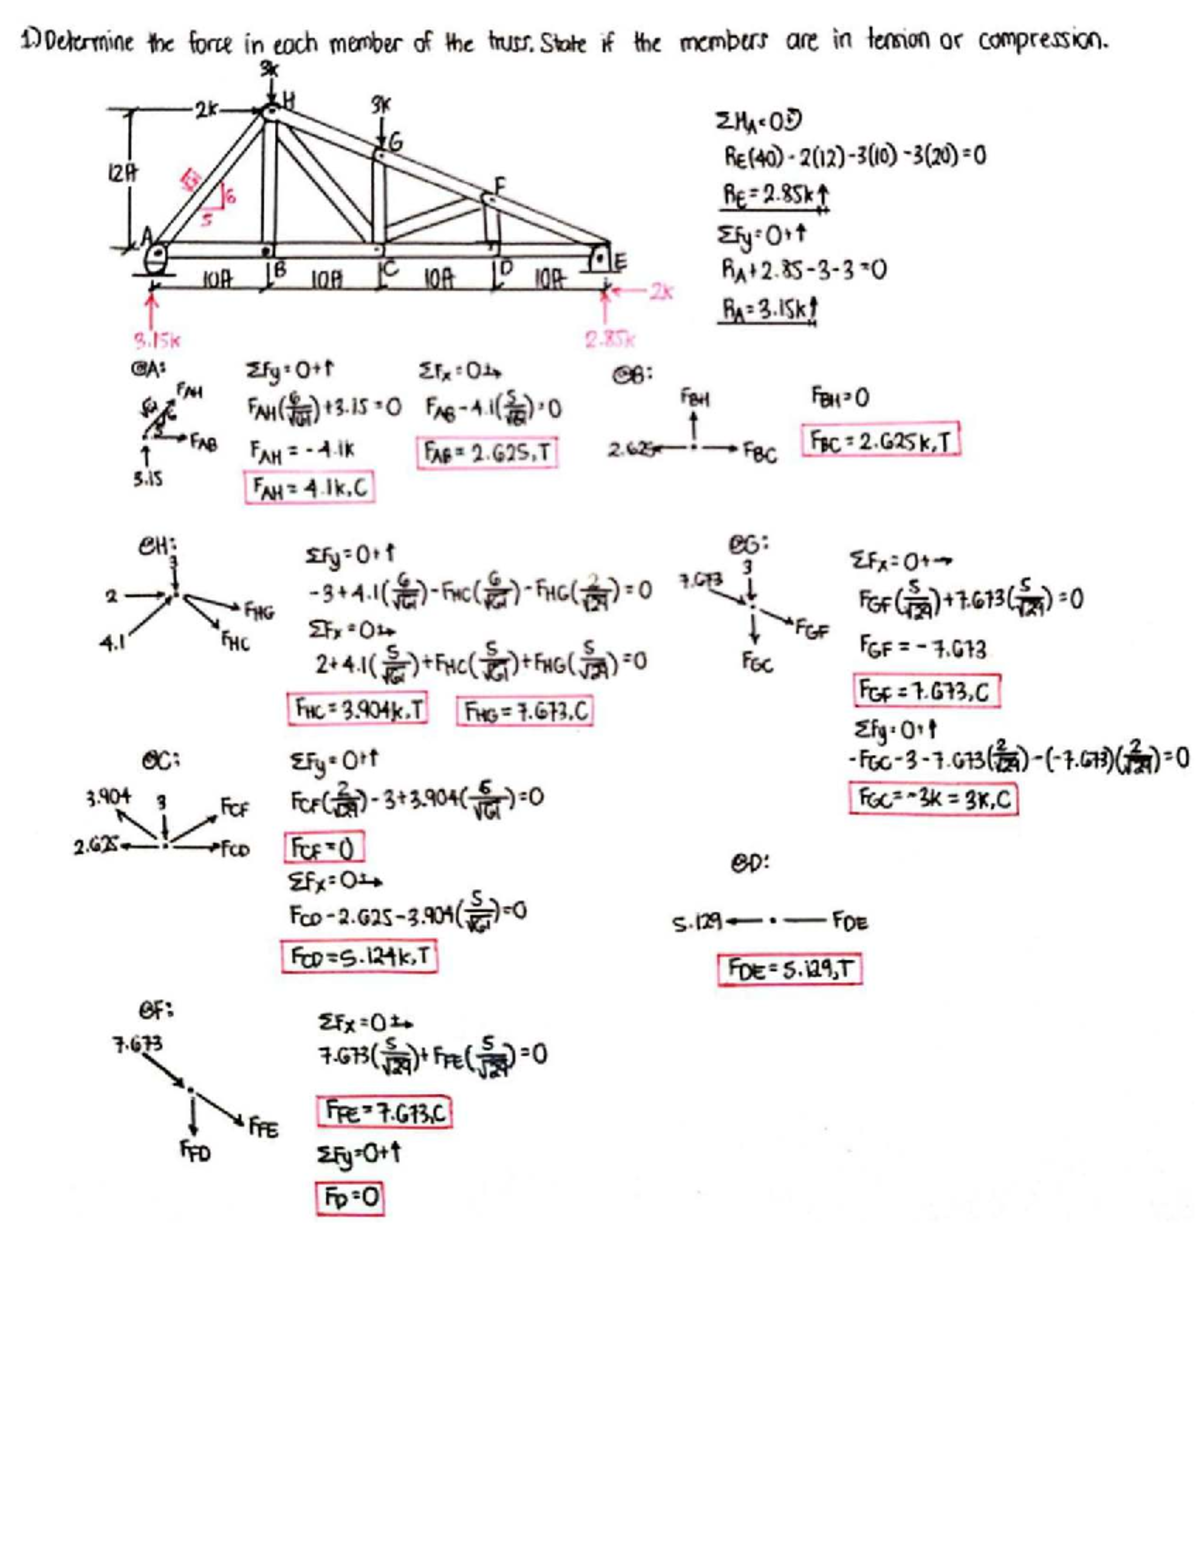 1) Determine the force in each member of the truss. State if the members are in tension or compression.
3k
H
2k
3k
G
12ft
√61
6
5
F
A
B
C
D
E
10ft
10ft
10ft
10ft
2k
3.15k
2.85k
ΣMA=0
RE(40)-2(12)-3(10)-3(20)=0
RE=2.85k↑
ΣFy=0+↑
RA+2.85-3-3=0
RA=3.15k↑
@A:
FAH
√61
6
5
FAB
3.15
ΣFy=0+↑
FAH(6/√61)+3.15=0
FAH=-4.1k
FAH=4.1k,C
ΣFx=0+→
FAB-4.1(5/√61)=0
FAB=2.625,T
@B:
FBH
2.625
FBC
FBH=0
FBC=2.625k,T
@H:
3
2
4.1
FHG
FHC
ΣFy=0+↑
-3+4.1(6/√61)-FHC(6/√61)-FHG(2/√29)=0
ΣFx=0+→
2+4.1(5/√61)+FHC(5/√61)+FHG(5/√29)=0
FHC=3.904k,T
FHG=7.673,C
@G:
3
7.673
FGF
FGC
ΣFx=0+→
FGF(5/√29)+7.673(5/√29)=0
FGF=-7.673
FGF=7.673,C
ΣFy=0+↑
-FGC-3-7.673(2/√29)-(-7.673)(2/√29)=0
FGC=-3k=3k,C
@C:
3.904
3
FCF
2.625
FCD
ΣFy=0+↑
FCF(2/√29)-3+3.904(6/√61)=0
FCF=0
ΣFx=0+→
FCD-2.625-3.904(5/√61)=0
FCD=5.124k,T
@D:
5.129
FDE
FDE=5.129,T
@F:
7.673
FFE
FFD
ΣFx=0+→
7.673(5/√29)+FFE(5/√29)=0
FFE=7.673,C
ΣFy=0+↑
FD=0